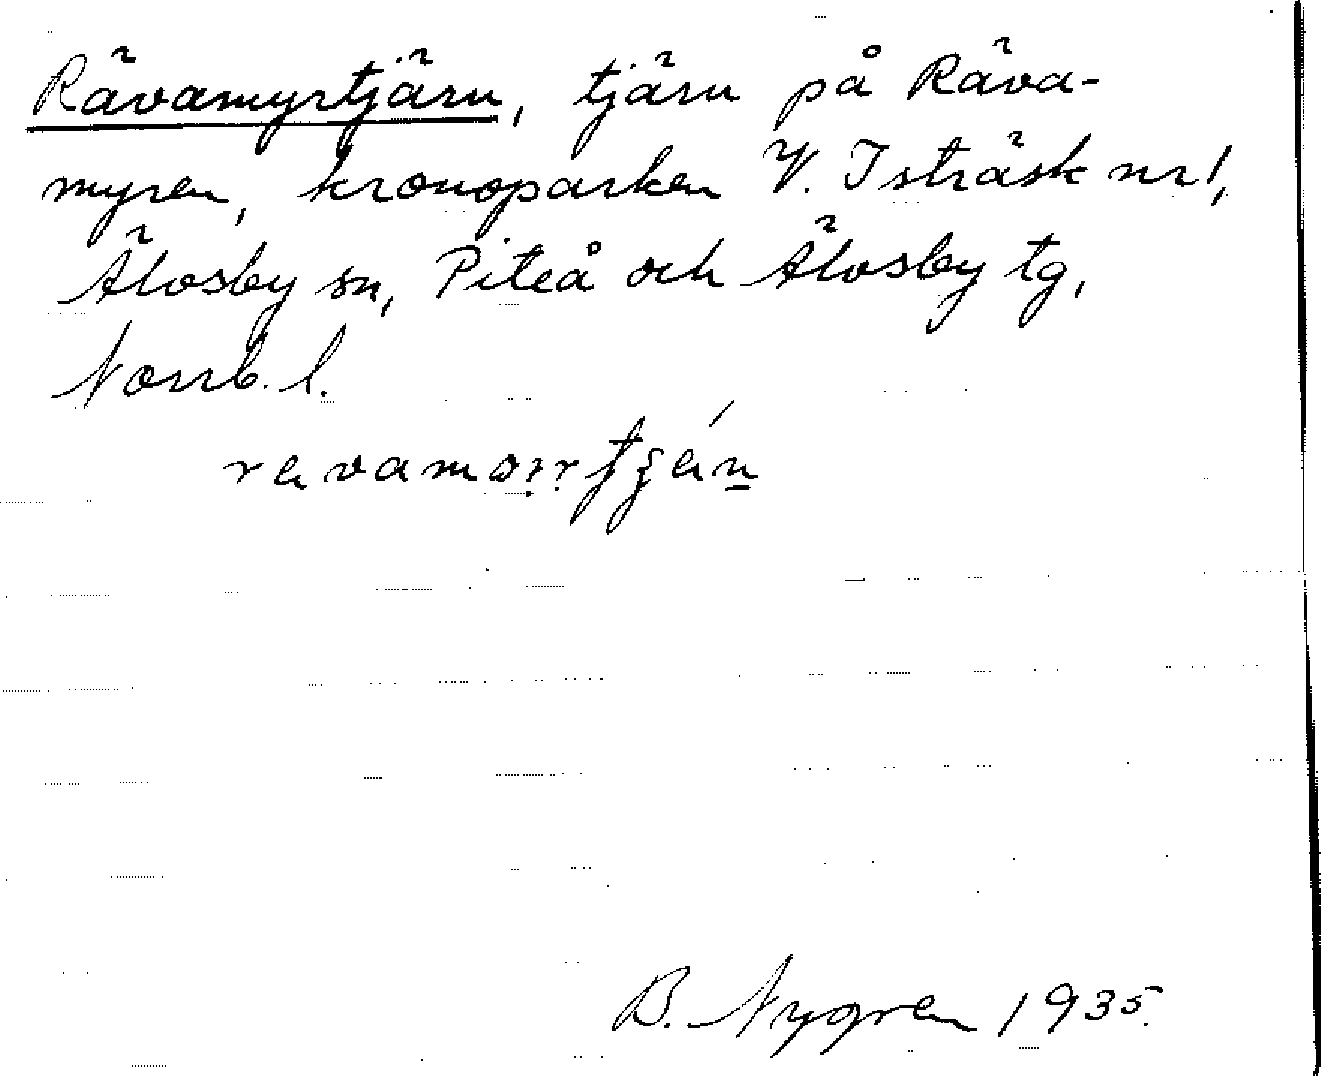 Rävamyrtjärn, tjärn på Räva-
myren, kronoparken V. Isträsk nr 1,
Älvsby sn, Piteå och Älvsby tg,
Norrb. l.
B. Nygren 1935.